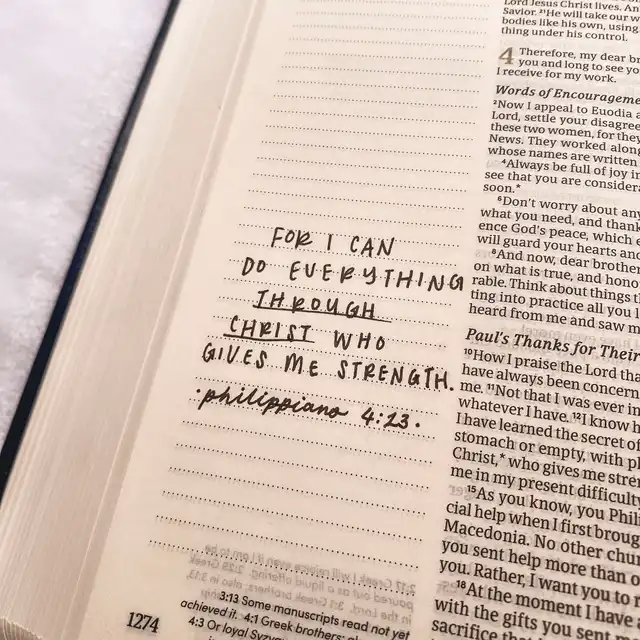 FOR I CAN
DO EVERYTHING
THROUGH
CHRIST WHO
GIVES ME STRENGTH.
·philippians 4:13·
1274
3:13 Some manuscripts read not yet
achieved it. 4:1 Greek brothers;
4:3 Or loyal
Lord Jesus Christ lives.
Savior. 21He will take our
bodies like his own, using
thing under his control.
4 Therefore, my dear
you and long to see
I receive for my work.
Words of
2Now I appeal to Euodia
Lord, settle your
these two women, for they
News. They worked
whose names are written
4Always be full of joy
see that you are
soon.*
6Don't worry about
what you need, and
ence God's peace, which
will guard your hearts
8And now, dear
on what is true, and
rable. Think about things
ting into practice all you
heard from me and saw
Paul's Thanks for Their
10How I praise the Lord
have always been
me. 11Not that I was ever
whatever I have. 12I know
I have learned the secret of
stomach or empty, with
Christ,* who gives me
me in my present
15As you know, you
cial help when I first
Macedonia. No other
you sent help more than
you. Rather, I want you to
18At the moment I have
with the gifts you sent
sacrifice